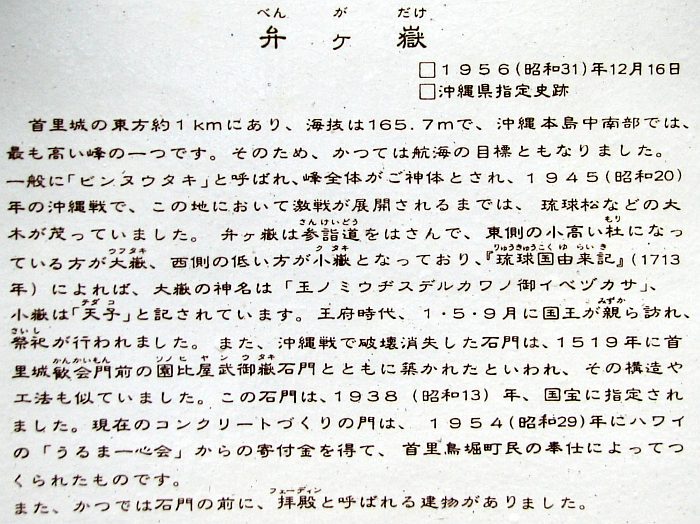 べんがだけ
弁ヶ嶽
□1956(昭和31)年12月16日
□沖縄県指定史跡
首里城の東方約1kmにあり、海抜は165.7mで、沖縄本島中南部では、
最も高い峰の一つです。そのため、かつては航海の目標ともなりました。
一般に「ビンヌウタキ」と呼ばれ、峰全体がご神体とされ、1945(昭和20)
年の沖縄戦で、この地において激戦が展開されるまでは、琉球松などの大
さんけいどう もり
木が茂っていました。弁ヶ嶽は参詣道をはさんで、東側の小高い杜になっ
ウフタキ ク タキ りゅうきゅうこくゆらいき
ている方が大嶽、西側の低い方が小嶽となっており、『琉球国由来記』(1713
年)によれば、大嶽の神名は「玉ノミウヂスデルカワノ御イベヅカサ」、
テダコ みずか
小嶽は「天子」と記されています。王府時代、1・5・9月に国王が親ら訪れ、
さいし
祭祀が行われました。また、沖縄戦で破壊消失した石門は、1519年に首
かんかいもん ソノヒヤンウタキ
里城歓会門前の園比屋武御嶽石門とともに築かれたといわれ、その構造や
工法も似ていました。この石門は、1938(昭和13)年、国宝に指定され
ました。現在のコンクリートづくりの門は、1954(昭和29)年にハワイ
の「うるま一心会」からの寄付金を得て、首里鳥堀町民の奉仕によってつ
くられたものです。
フェーディン
また、かつては石門の前に、拝殿と呼ばれる建物がありました。